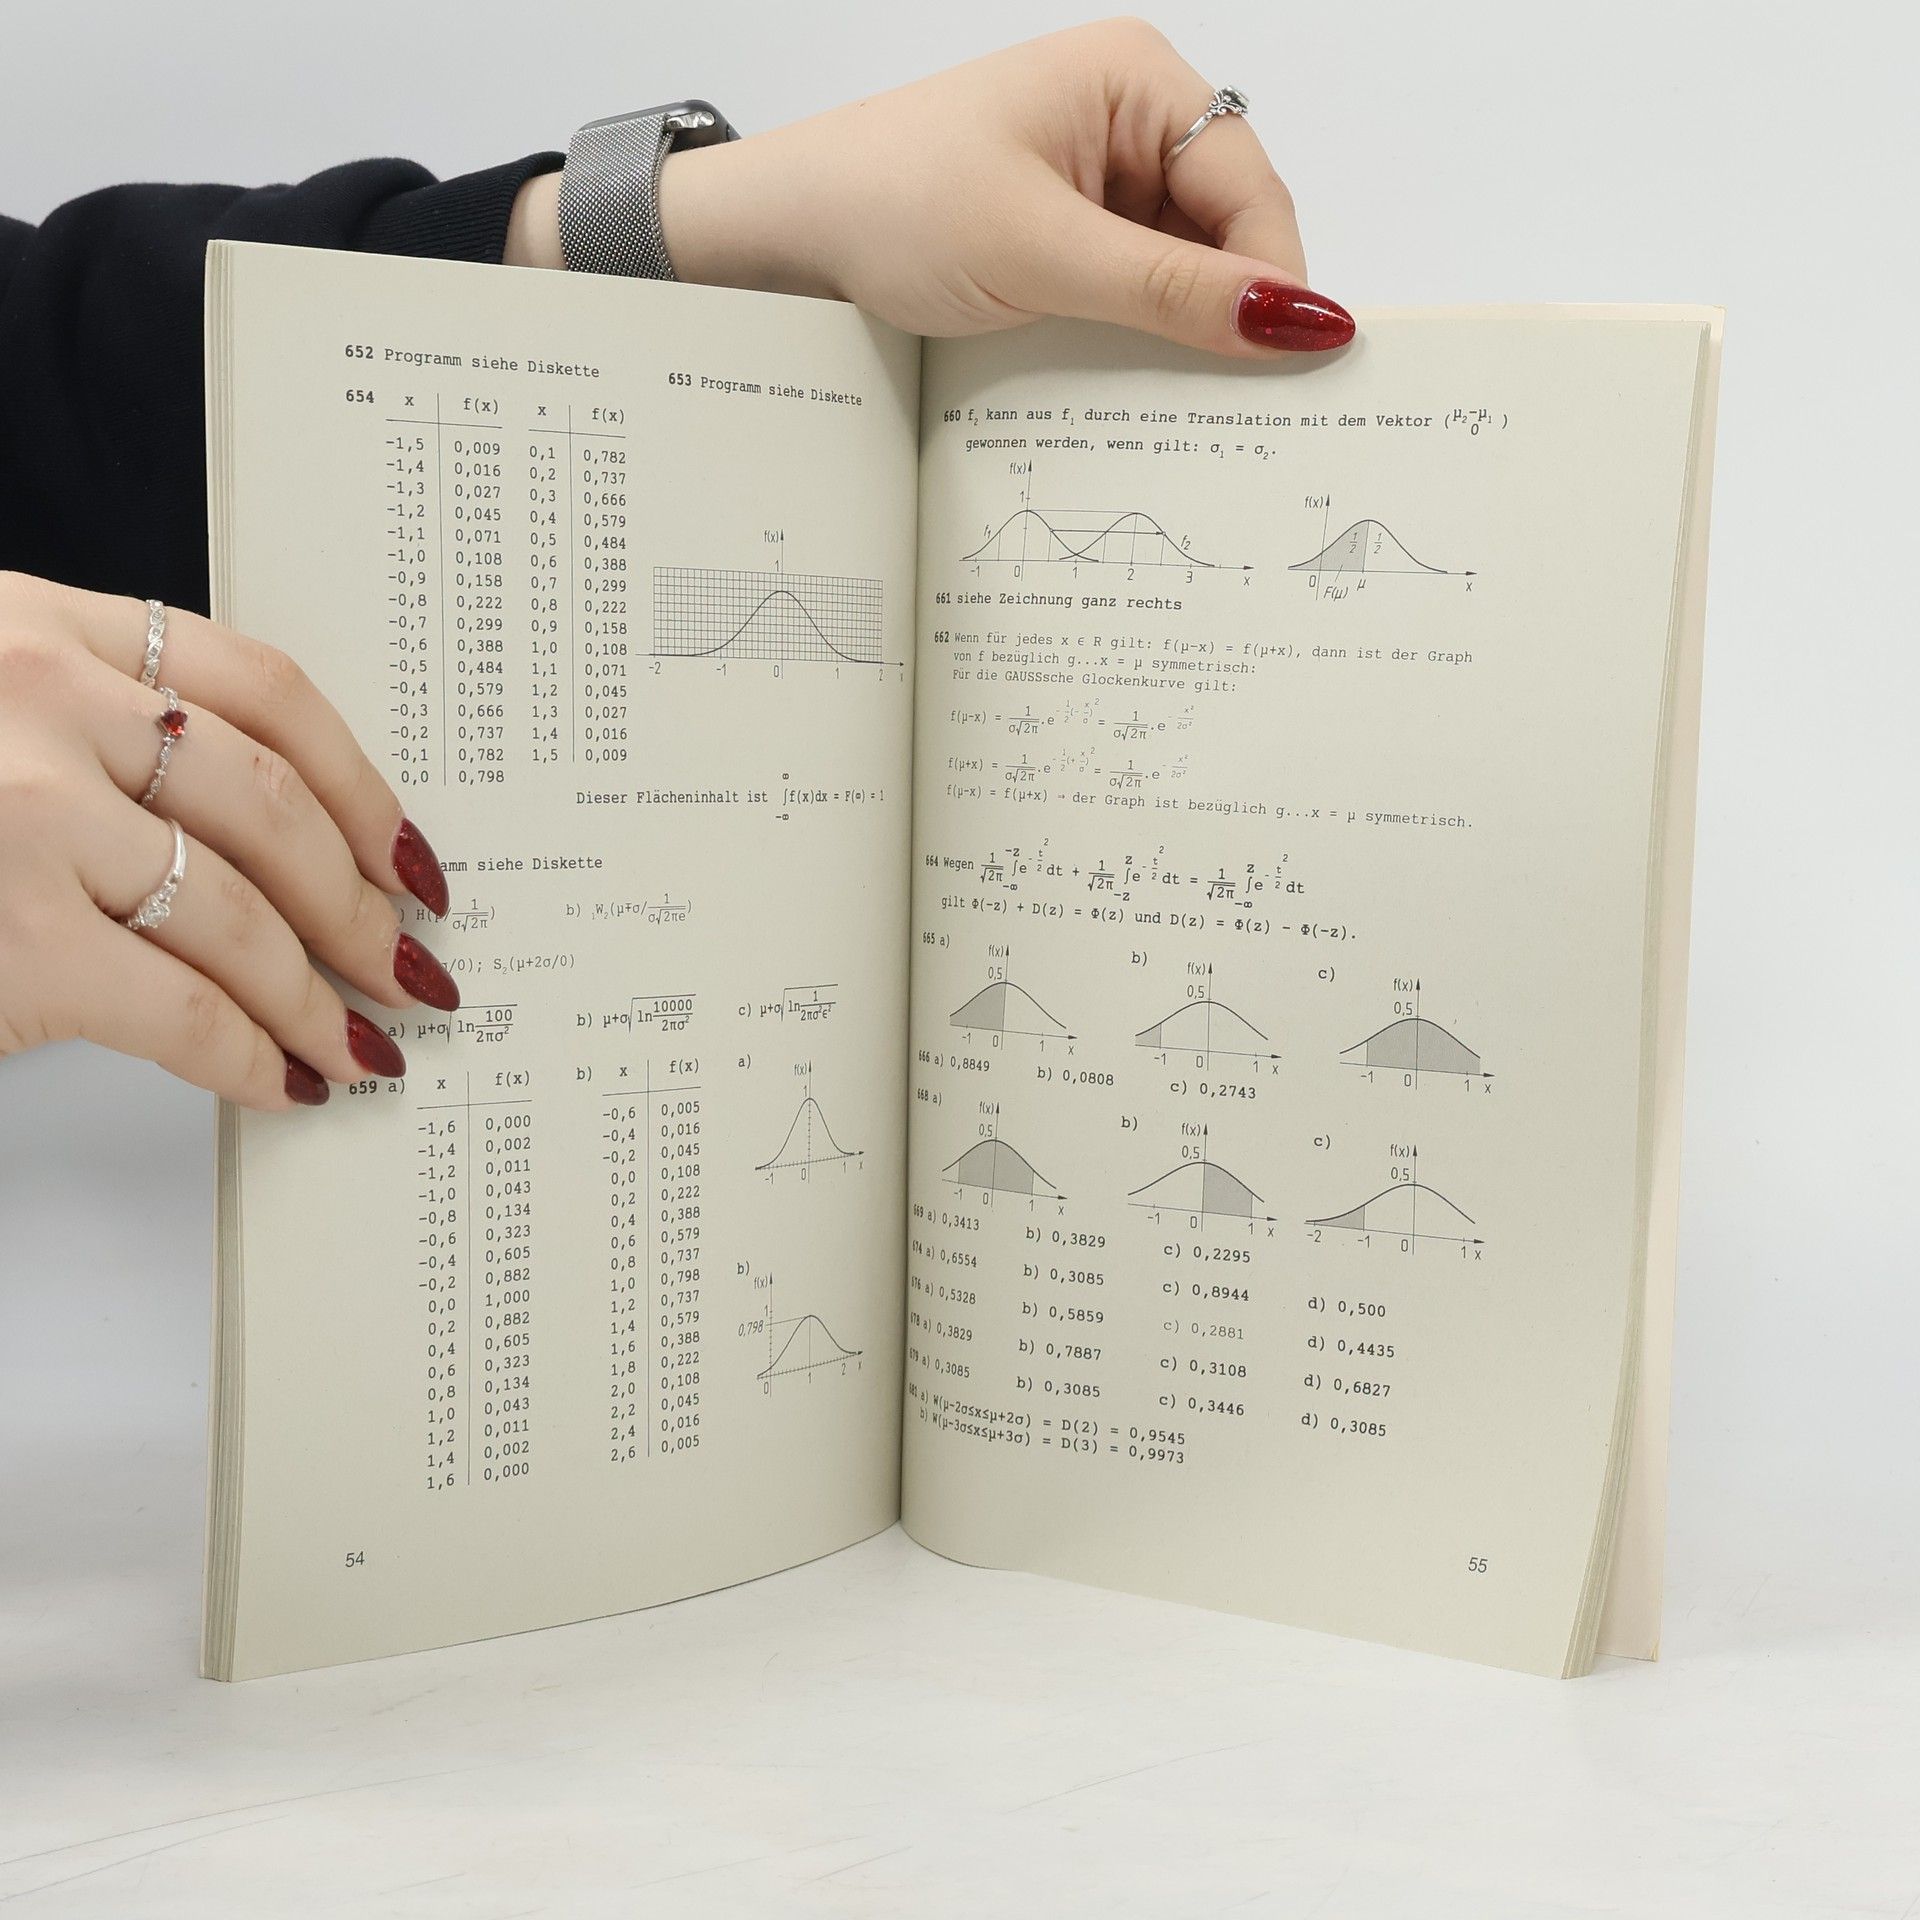 652 Programm siehe Diskette
653 Programm siehe Diskette
654 x f(x) x f(x)
-1,5 0,009 0,1 0,782
-1,4 0,016 0,2 0,737
-1,3 0,027 0,3 0,666
-1,2 0,045 0,4 0,579
-1,1 0,071 0,5 0,484
-1,0 0,108 0,6 0,388
-0,9 0,158 0,7 0,299
-0,8 0,222 0,8 0,222
-0,7 0,299 0,9 0,158
-0,6 0,388 1,0 0,108
-0,5 0,484 1,1 0,071
-0,4 0,579 1,2 0,045
-0,3 0,666 1,3 0,027
-0,2 0,737 1,4 0,016
-0,1 0,782 1,5 0,009
0,0 0,798
f(x)
1
-2 -1 0 1 2 x
Dieser Flächeninhalt ist ∫_{-∞}^{∞} f(x)dx = F(∞) = 1
siehe Diskette
b) ₁W₂(μ∓σ/ 1/(σ√(2πe)))
S₂(μ+2σ/0)
a) μ+σ√(ln 100/(2πσ²)) b) μ+σ√(ln 10000/(2πσ²)) c) μ+σ√(ln 1/(2πσ²ε²))
659 a) x f(x) b) x f(x) a)
-1,6 0,000 -0,6 0,005
-1,4 0,002 -0,4 0,016
-1,2 0,011 -0,2 0,045
-1,0 0,043 0,0 0,108
-0,8 0,134 0,2 0,222
-0,6 0,323 0,4 0,388
-0,4 0,605 0,6 0,579
-0,2 0,882 0,8 0,737
0,0 1,000 1,0 0,798
0,2 0,882 1,2 0,737
0,4 0,605 1,4 0,579
0,6 0,323 1,6 0,388
0,8 0,134 1,8 0,222
1,0 0,043 2,0 0,108
1,2 0,011 2,2 0,045
1,4 0,002 2,4 0,016
1,6 0,000 2,6 0,005
f(x)
1
-1 0 1 x
b)
f(x)
1
0,798
0 1 2 x
54
660 f₂ kann aus f₁ durch eine Translation mit dem Vektor (μ₂-μ₁ 0)
gewonnen werden, wenn gilt: σ₁ = σ₂.
f(x)
1
f₁ f₂
-1 0 1 2 3 x
f(x)
1/2 1/2
0 μ x
F(μ)
661 siehe Zeichnung ganz rechts
662 Wenn für jedes x ∈ R gilt: f(μ-x) = f(μ+x), dann ist der Graph
von f bezüglich g...x = μ symmetrisch:
Für die GAUSSsche Glockenkurve gilt:
f(μ-x) = 1/(σ√2π).e^(-1/2(-x/σ)²) = 1/(σ√2π).e^(-x²/2σ²)
f(μ+x) = 1/(σ√2π).e^(-1/2(+x/σ)²) = 1/(σ√2π).e^(-x²/2σ²)
f(μ-x) = f(μ+x) → der Graph ist bezüglich g...x = μ symmetrisch.
664 Wegen 1/√2π ∫_{-∞}^{-z} e^(-t²/2) dt + 1/√2π ∫_{-z}^{z} e^(-t²/2) dt = 1/√2π ∫_{-∞}^{z} e^(-t²/2) dt
gilt Φ(-z) + D(z) = Φ(z) und D(z) = Φ(z) - Φ(-z).
665 a) b) c)
f(x) f(x) f(x)
0,5 0,5 0,5
-1 0 1 x -1 0 1 x -1 0 1 x
666 a) 0,8849 b) 0,0808 c) 0,2743
668 a) b) c)
f(x) f(x) f(x)
0,5 0,5 0,5
-1 0 1 x -1 0 1 x -2 -1 0 1 x
669 a) 0,3413 b) 0,3829 c) 0,2295
674 a) 0,6554 b) 0,3085 c) 0,8944 d) 0,500
676 a) 0,5328 b) 0,5859 c) 0,2881 d) 0,4435
678 a) 0,3829 b) 0,7887 c) 0,3108 d) 0,6827
679 a) 0,3085 b) 0,3085 c) 0,3446 d) 0,3085
a) W(μ-2σ≤x≤μ+2σ) = D(2) = 0,9545
b) W(μ-3σ≤x≤μ+3σ) = D(3) = 0,9973
55